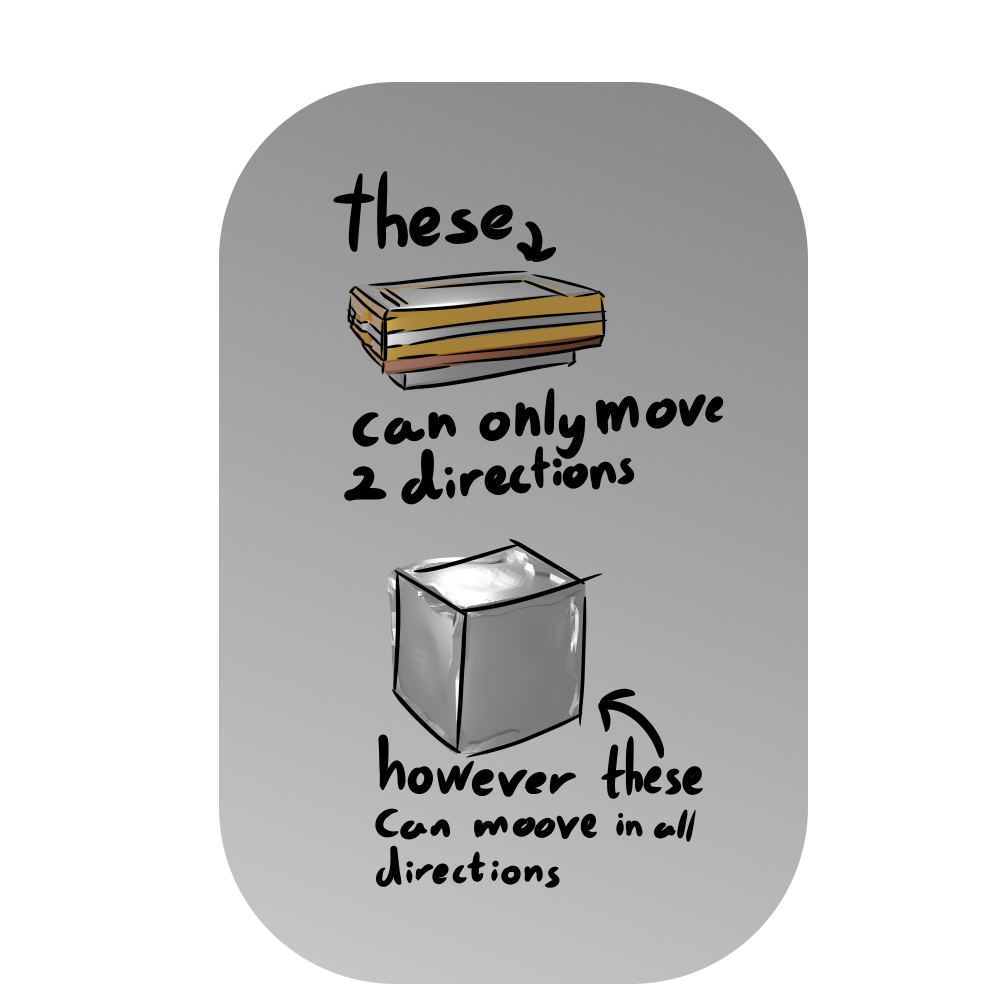 these
can only move
2 directions
however these
can moove in all
directions